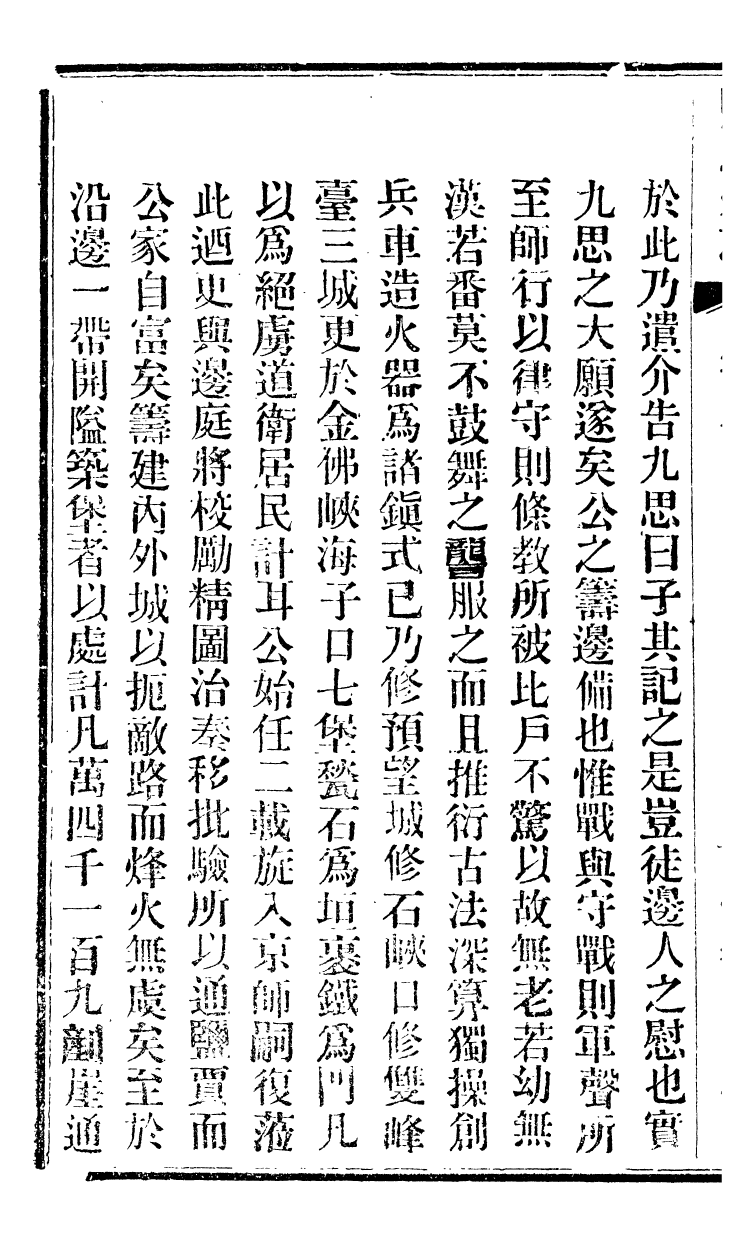 於此乃遣介告九思曰子其記之是豈徒邊人之慰也實
九思之大願遂矣公之籌邊備也惟戰與守戰則軍聲所
至師行以律守則條教所被比戶不驚以故無老若幼無
漢若番莫不鼓舞之讋服之而且推衍古法深算獨操創
兵車造火器爲諸鎭式已乃修預望城修石峽口修雙峰
臺三城更於金佛峽海子口七堡甃石爲垣裹鐵爲門凡
以爲絕虜道衛居民計耳公始任二載旋入京師嗣復蒞
此迺更與邊庭將校勵精圖治奏移批驗所以通鹽賈而
公家自富矣籌建內外城以扼敵路而烽火無虞矣至於
沿邊一帶開隘築堡者以處計凡萬四千一百九劃崖通